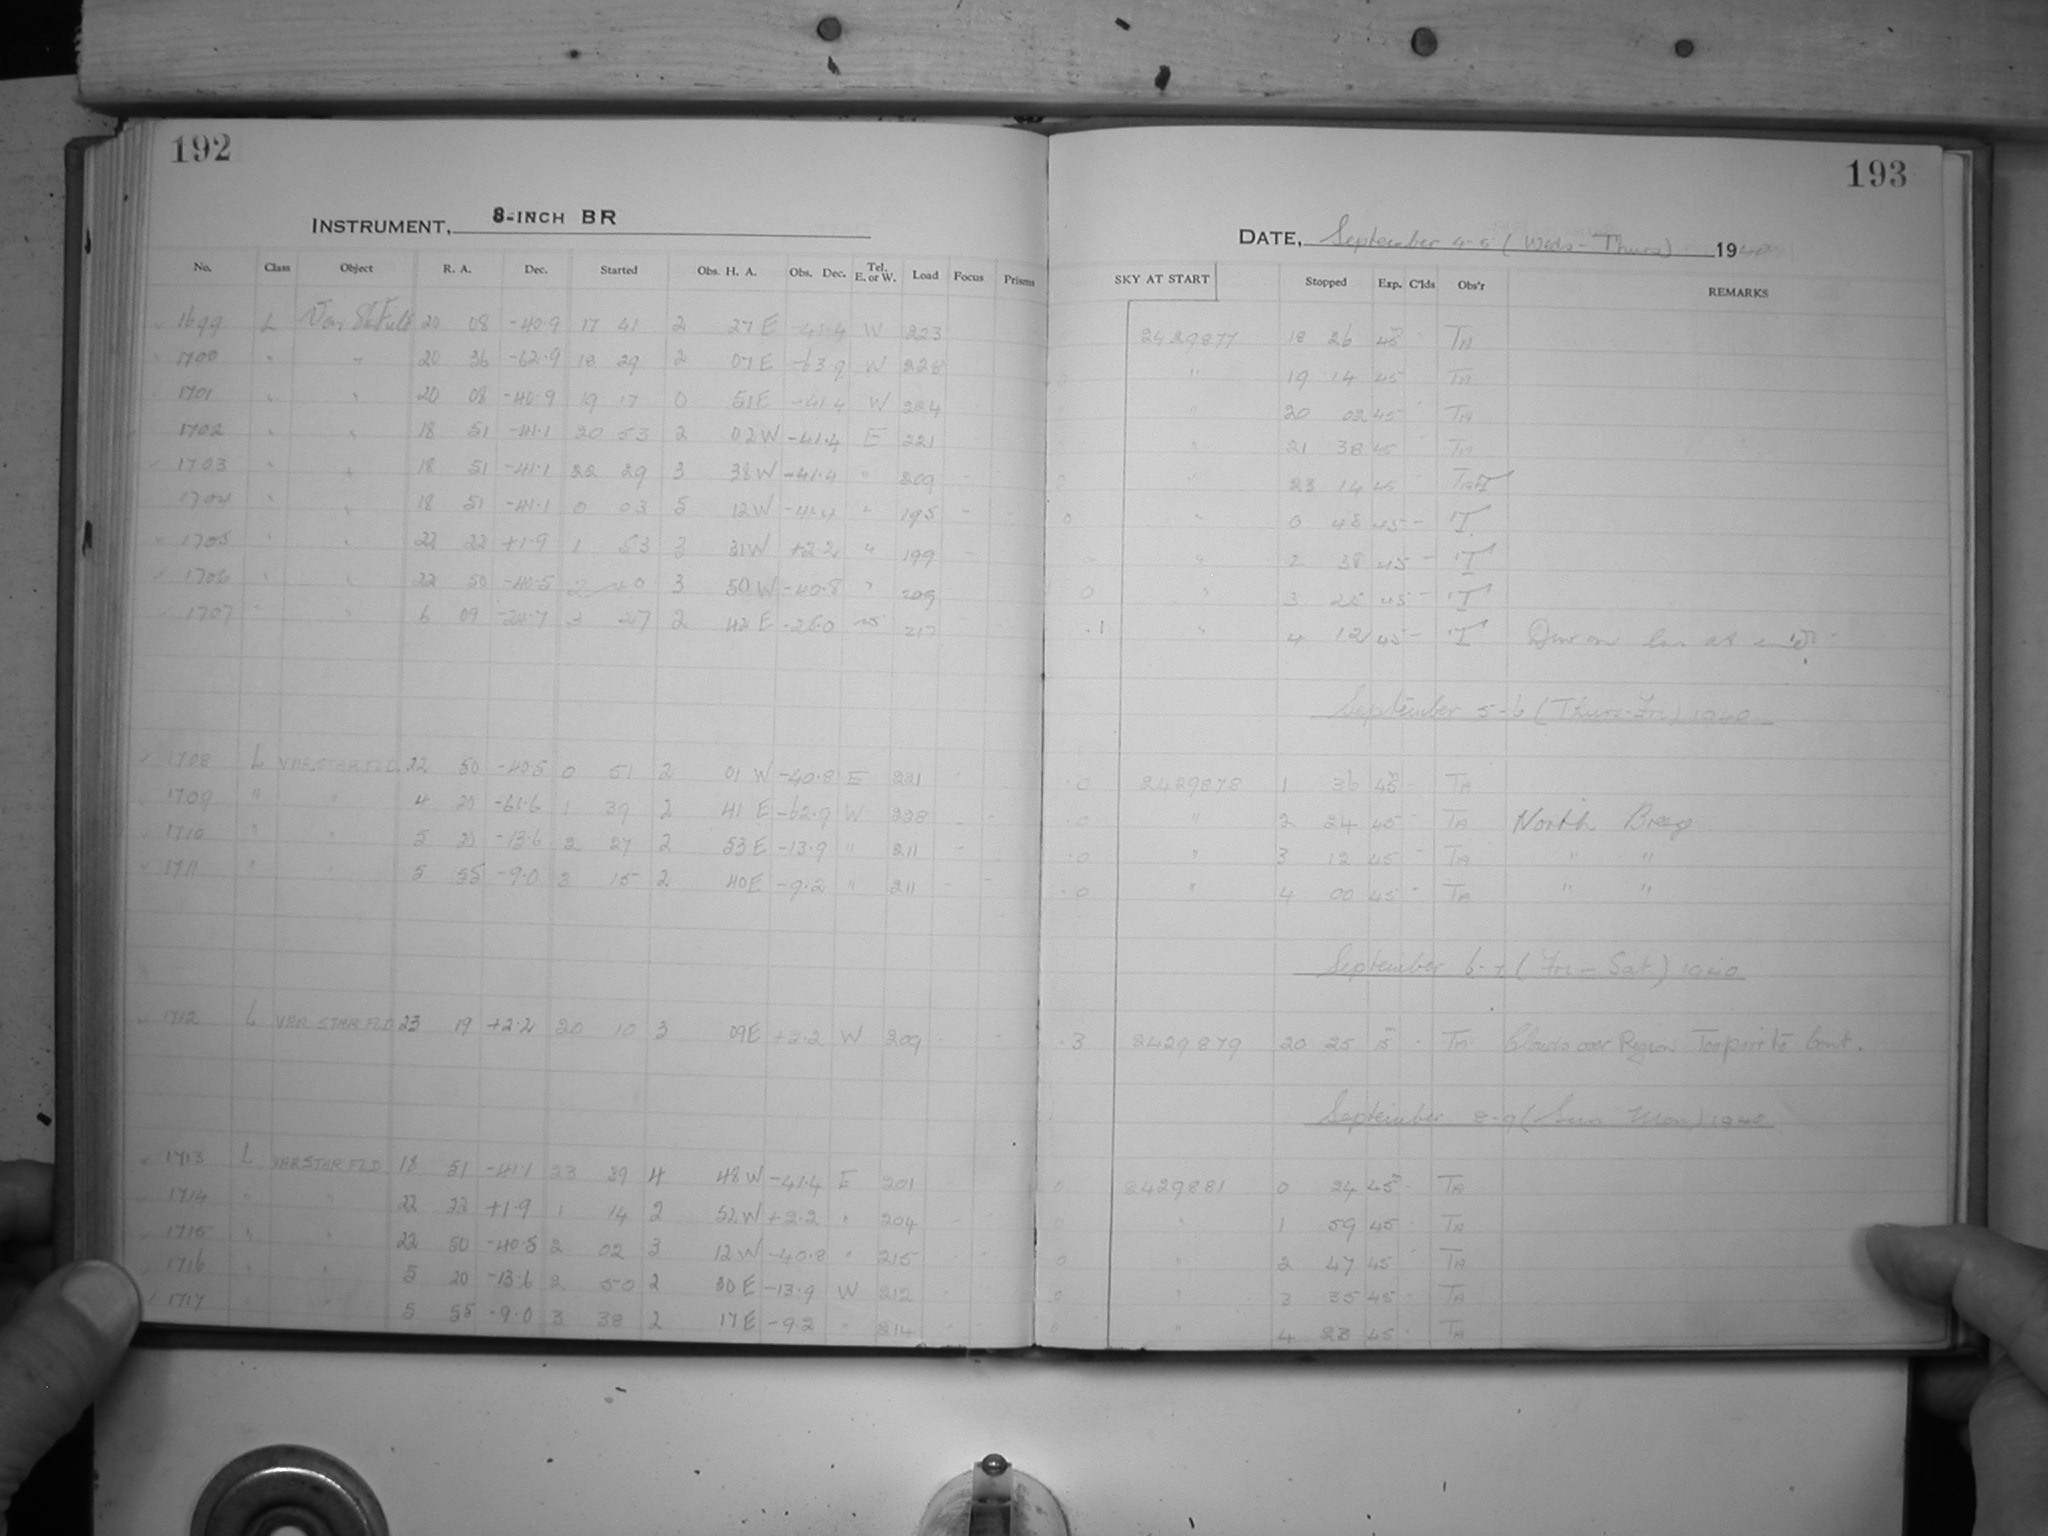 192
INSTRUMENT, 8-INCH BR
No. Class Object R. A. Dec. Started Obs. H. A. Obs. Dec. Tel. E. or W. Load Focus Prisms
1699 L Var St Field 20 08 -40.9 17 41 2 27 E -41.4 W 223
1700 " " 20 36 -62.9 18 29 2 07 E -63.9 W 226
1701 " " 20 08 -40.9 19 17 0 51 E -41.4 W 224
1702 " " 18 51 -41.1 20 53 2 02 W -41.4 E 221
1703 " " 18 51 -41.1 22 29 3 38 W -41.4 " 209
1704 " " 18 51 -41.1 0 03 5 12 W -41.4 " 195
1705 " " 22 22 +1.9 1 53 3 31 W +2.2 " 199
1706 " " 22 50 -40.5 2 40 3 50 W -40.8 " 209
1707 " " 6 09 -24.7 3 27 2 42 E -25.0 217
1708 L VAR STAR FLD 22 50 -40.5 0 51 2 01 W -40.8 E 221
1709 " " 4 20 -61.6 1 39 2 41 E -62.9 W 228
1710 " " 5 20 -13.6 2 27 2 53 E -13.9 " 211
1711 " " 5 55 -9.0 3 15 2 40 E -9.2 " 211
1712 L VAR STAR FLD 23 19 +2.2 20 10 3 09 E +2.2 W 209
1713 L VAR STAR FLD 18 51 -41.1 23 39 4 48 W -41.4 E 201
1714 " " 22 22 +1.9 1 14 2 52 W +2.2 " 204
1715 " " 22 50 -40.5 2 02 3 12 W -40.8 " 215
1716 " " 5 20 -13.6 2 50 2 30 E -13.9 W 212
1717 " " 5 55 -9.0 3 38 2 17 E -9.2 " 214
193
DATE, September 4-5 (Weds-Thurs) 1940
SKY AT START Stopped Exp. C'lds Obs'r REMARKS
2429877 18 26 45m TA
" 19 14 45 TA
" 20 02 45 TA
" 21 38 45 TA
" 23 14 45
0 " 0 48 45 - T
" 2 38 45 - T
0 " 3 25 45 - T
.1 " 4 12 45 - T Dew on lens at end
September 5-6 (Thurs-Fri) 1940
.0 2429878 1 36 45m TA
.0 " 2 24 45 TA North
.0 " 3 12 45 TA " "
.0 " 4 00 45 TA " "
September 6-7 (Fri-Sat) 1940
.3 2429879 20 25 15 TA Clouds over Region Too poor to Cont.
September 8-9 (Sun Mon) 1940
0 2429881 0 24 45m TA
0 " 1 59 45 TA
0 " 2 47 45 TA
0 " 3 35 45 TA
0 " 4 23 45 TA